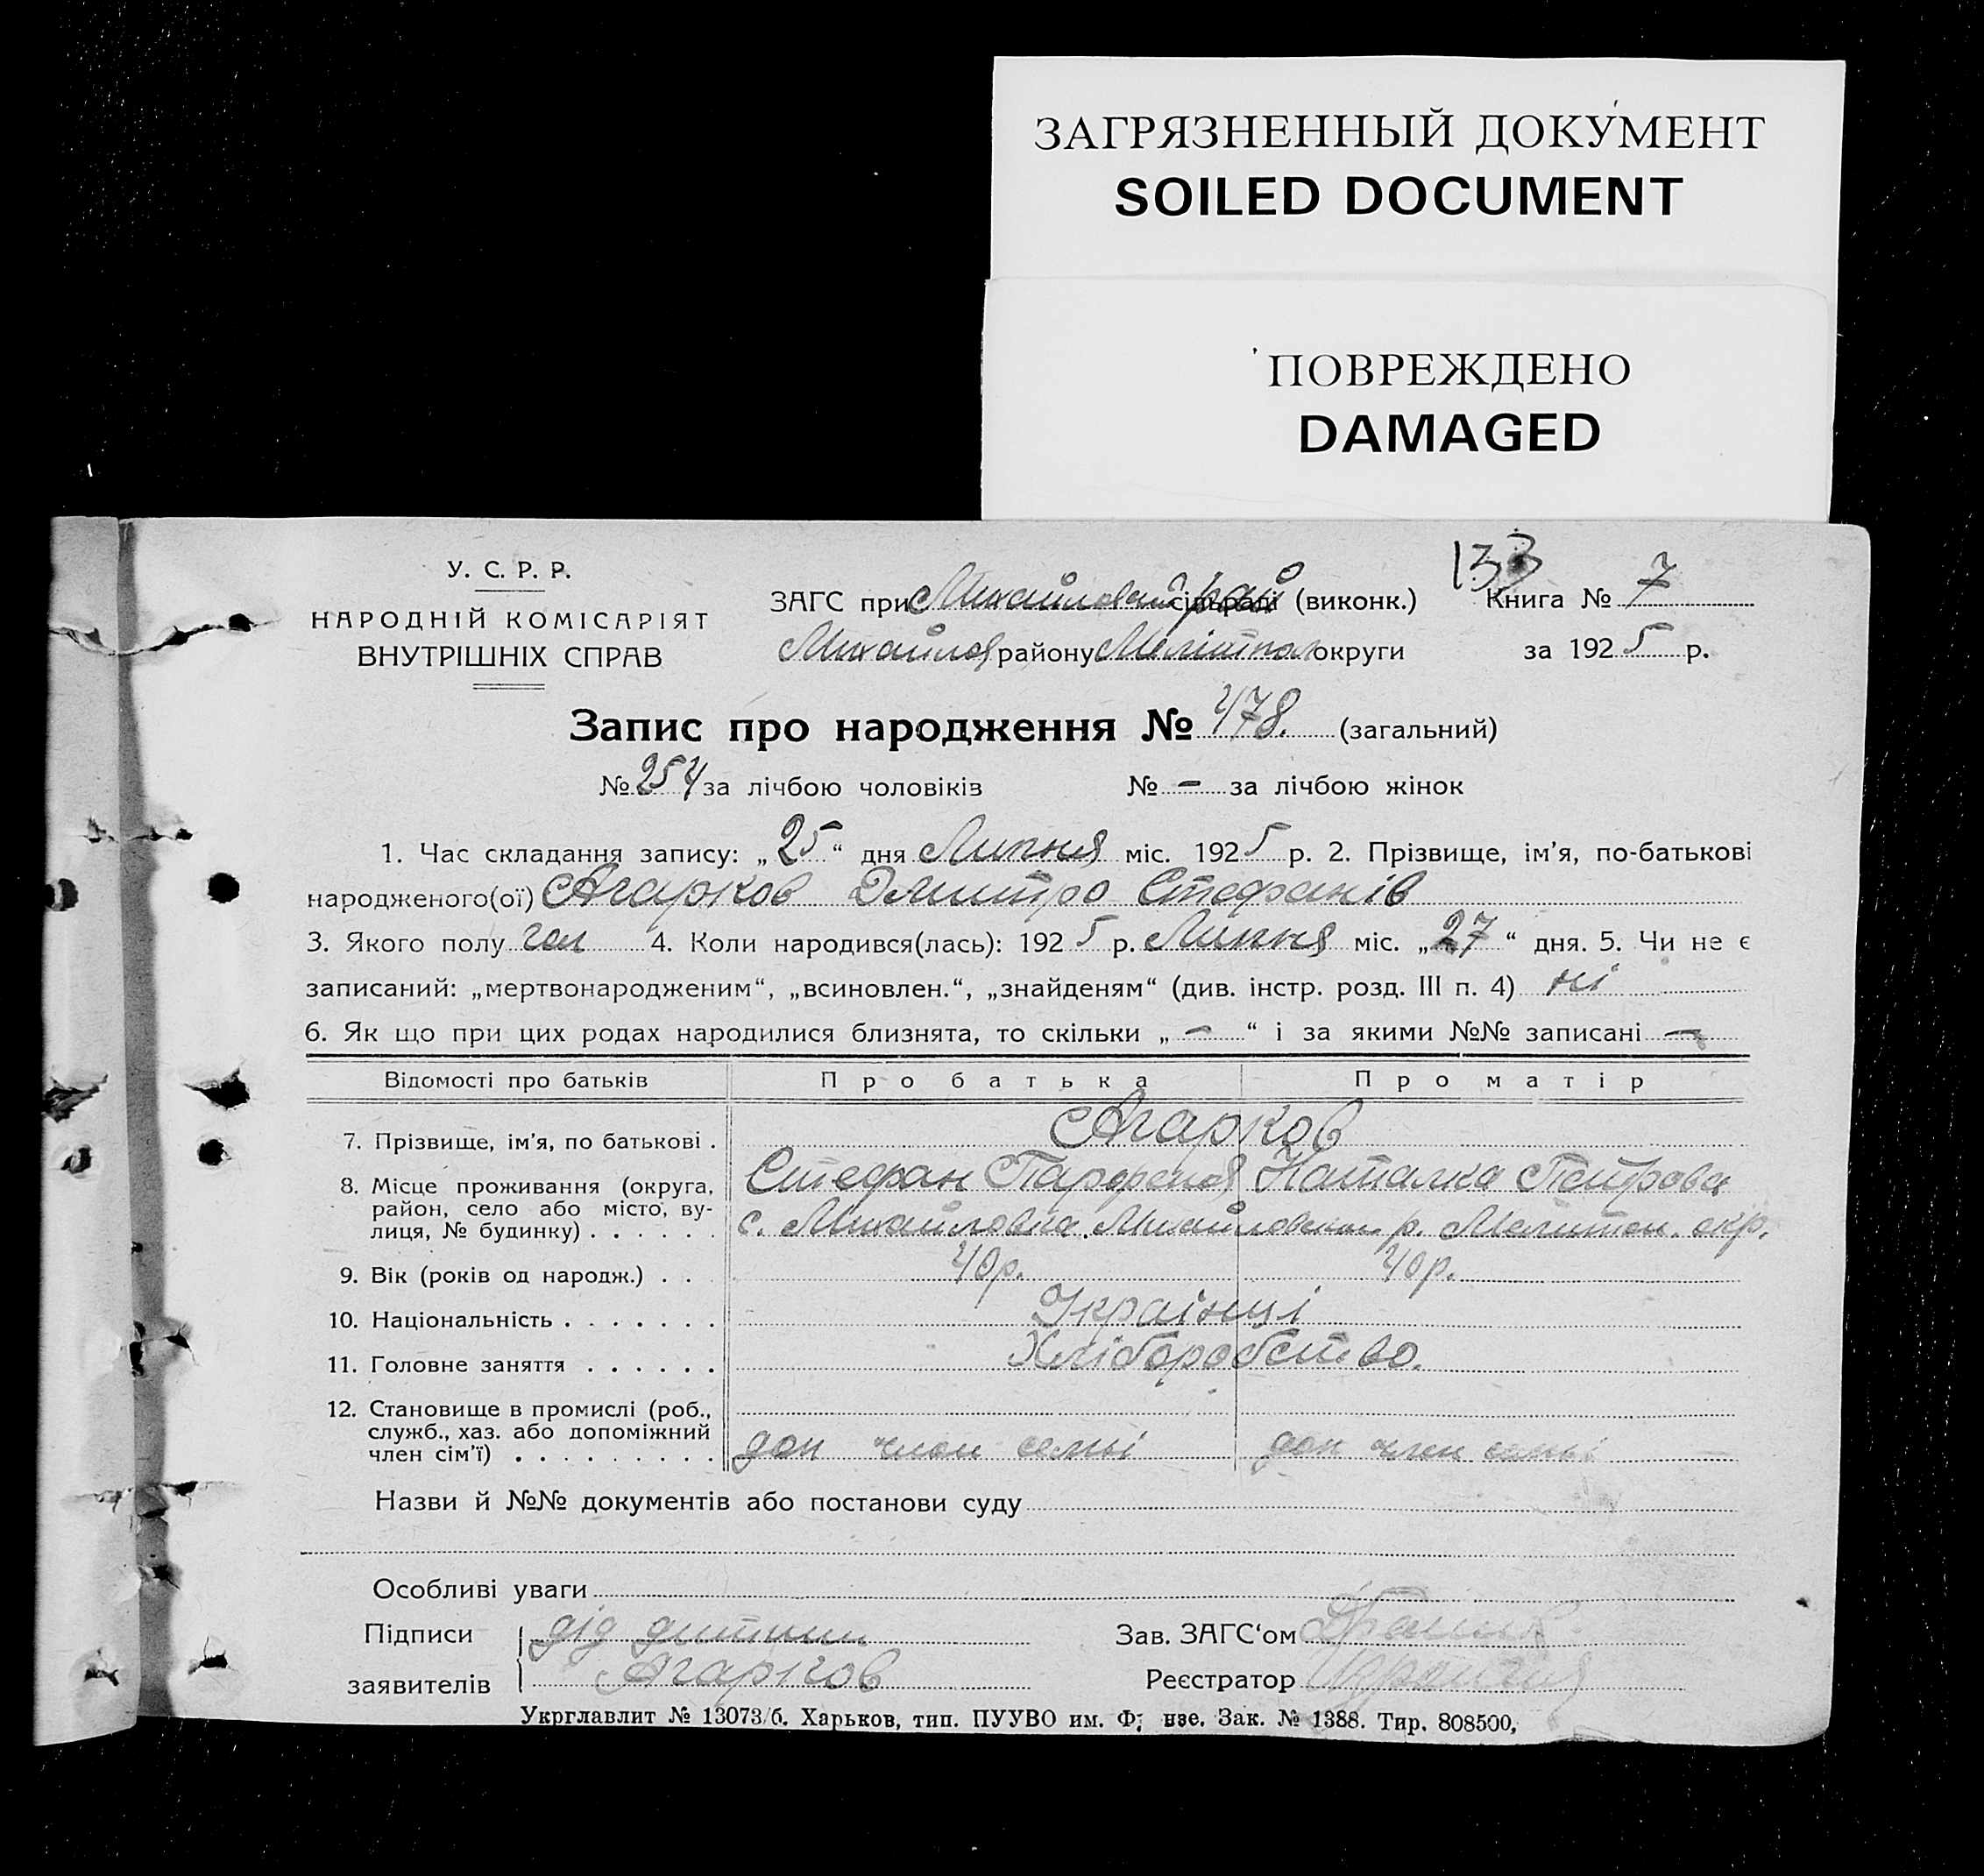 ЗАГРЯЗНЕННЫЙ ДОКУМЕНТ
SOILED DOCUMENT
ПОВРЕЖДЕНО
DAMAGED
133
У. С. Р. Р.
НАРОДНІЙ КОМІСАРІЯТ
ВНУТРІШНІХ СПРАВ
ЗАГС при Михайловск сільраді рай (виконк.) Книга № 7
Михайлов району Мелітопол округи за 1925 р.
Запис про народження № 478. (загальний)
№ 254 за лічбою чоловіків № - за лічбою жінок
1. Час складання запису: „25“ дня Липня міс. 1925 р. 2. Прізвище, ім'я, по-батькові
народженого(ої) Агарков Дмитро Стефанів
3. Якого полу чол 4. Коли народився(лась): 1925 р. Липня міс. „27“ дня. 5. Чи не є
записаний: „мертвонародженим“, „всиновлен.“, „знайденям“ (див. інстр. розд. III п. 4) ні
6. Як що при цих родах народилися близнята, то скільки „-“ і за якими №№ записані -
Відомості про батьків Про батька Про матір
7. Прізвище, ім'я, по батькові . Агарков
Стефан Парфенов Наталка Петрова
8. Місце проживання (округа,
район, село або місто, ву-
лиця, № будинку) . . . . . . с. Михайловка Михайловськ р. Мелитоп. окр.
9. Вік (років од народж.) . . 40 р. 40 р.
10. Національність . . . . . . . Українці
11. Головне заняття . . . . . . Хліборобство.
12. Становище в промислі (роб.,
служб., хаз. або допоміжний
член сім'ї) . . . . . . . . . доп член семьі доп член семьі
Назви й №№ документів або постанови суду
Особливі уваги
Підписи дід дитини Зав. ЗАГС'ом
заявителів Агарков Реєстратор
Укрглавлит № 13073/б. Харьков, тип. ПУУВО им. Ф; нзе. Зак. № 1388. Тир. 808500,